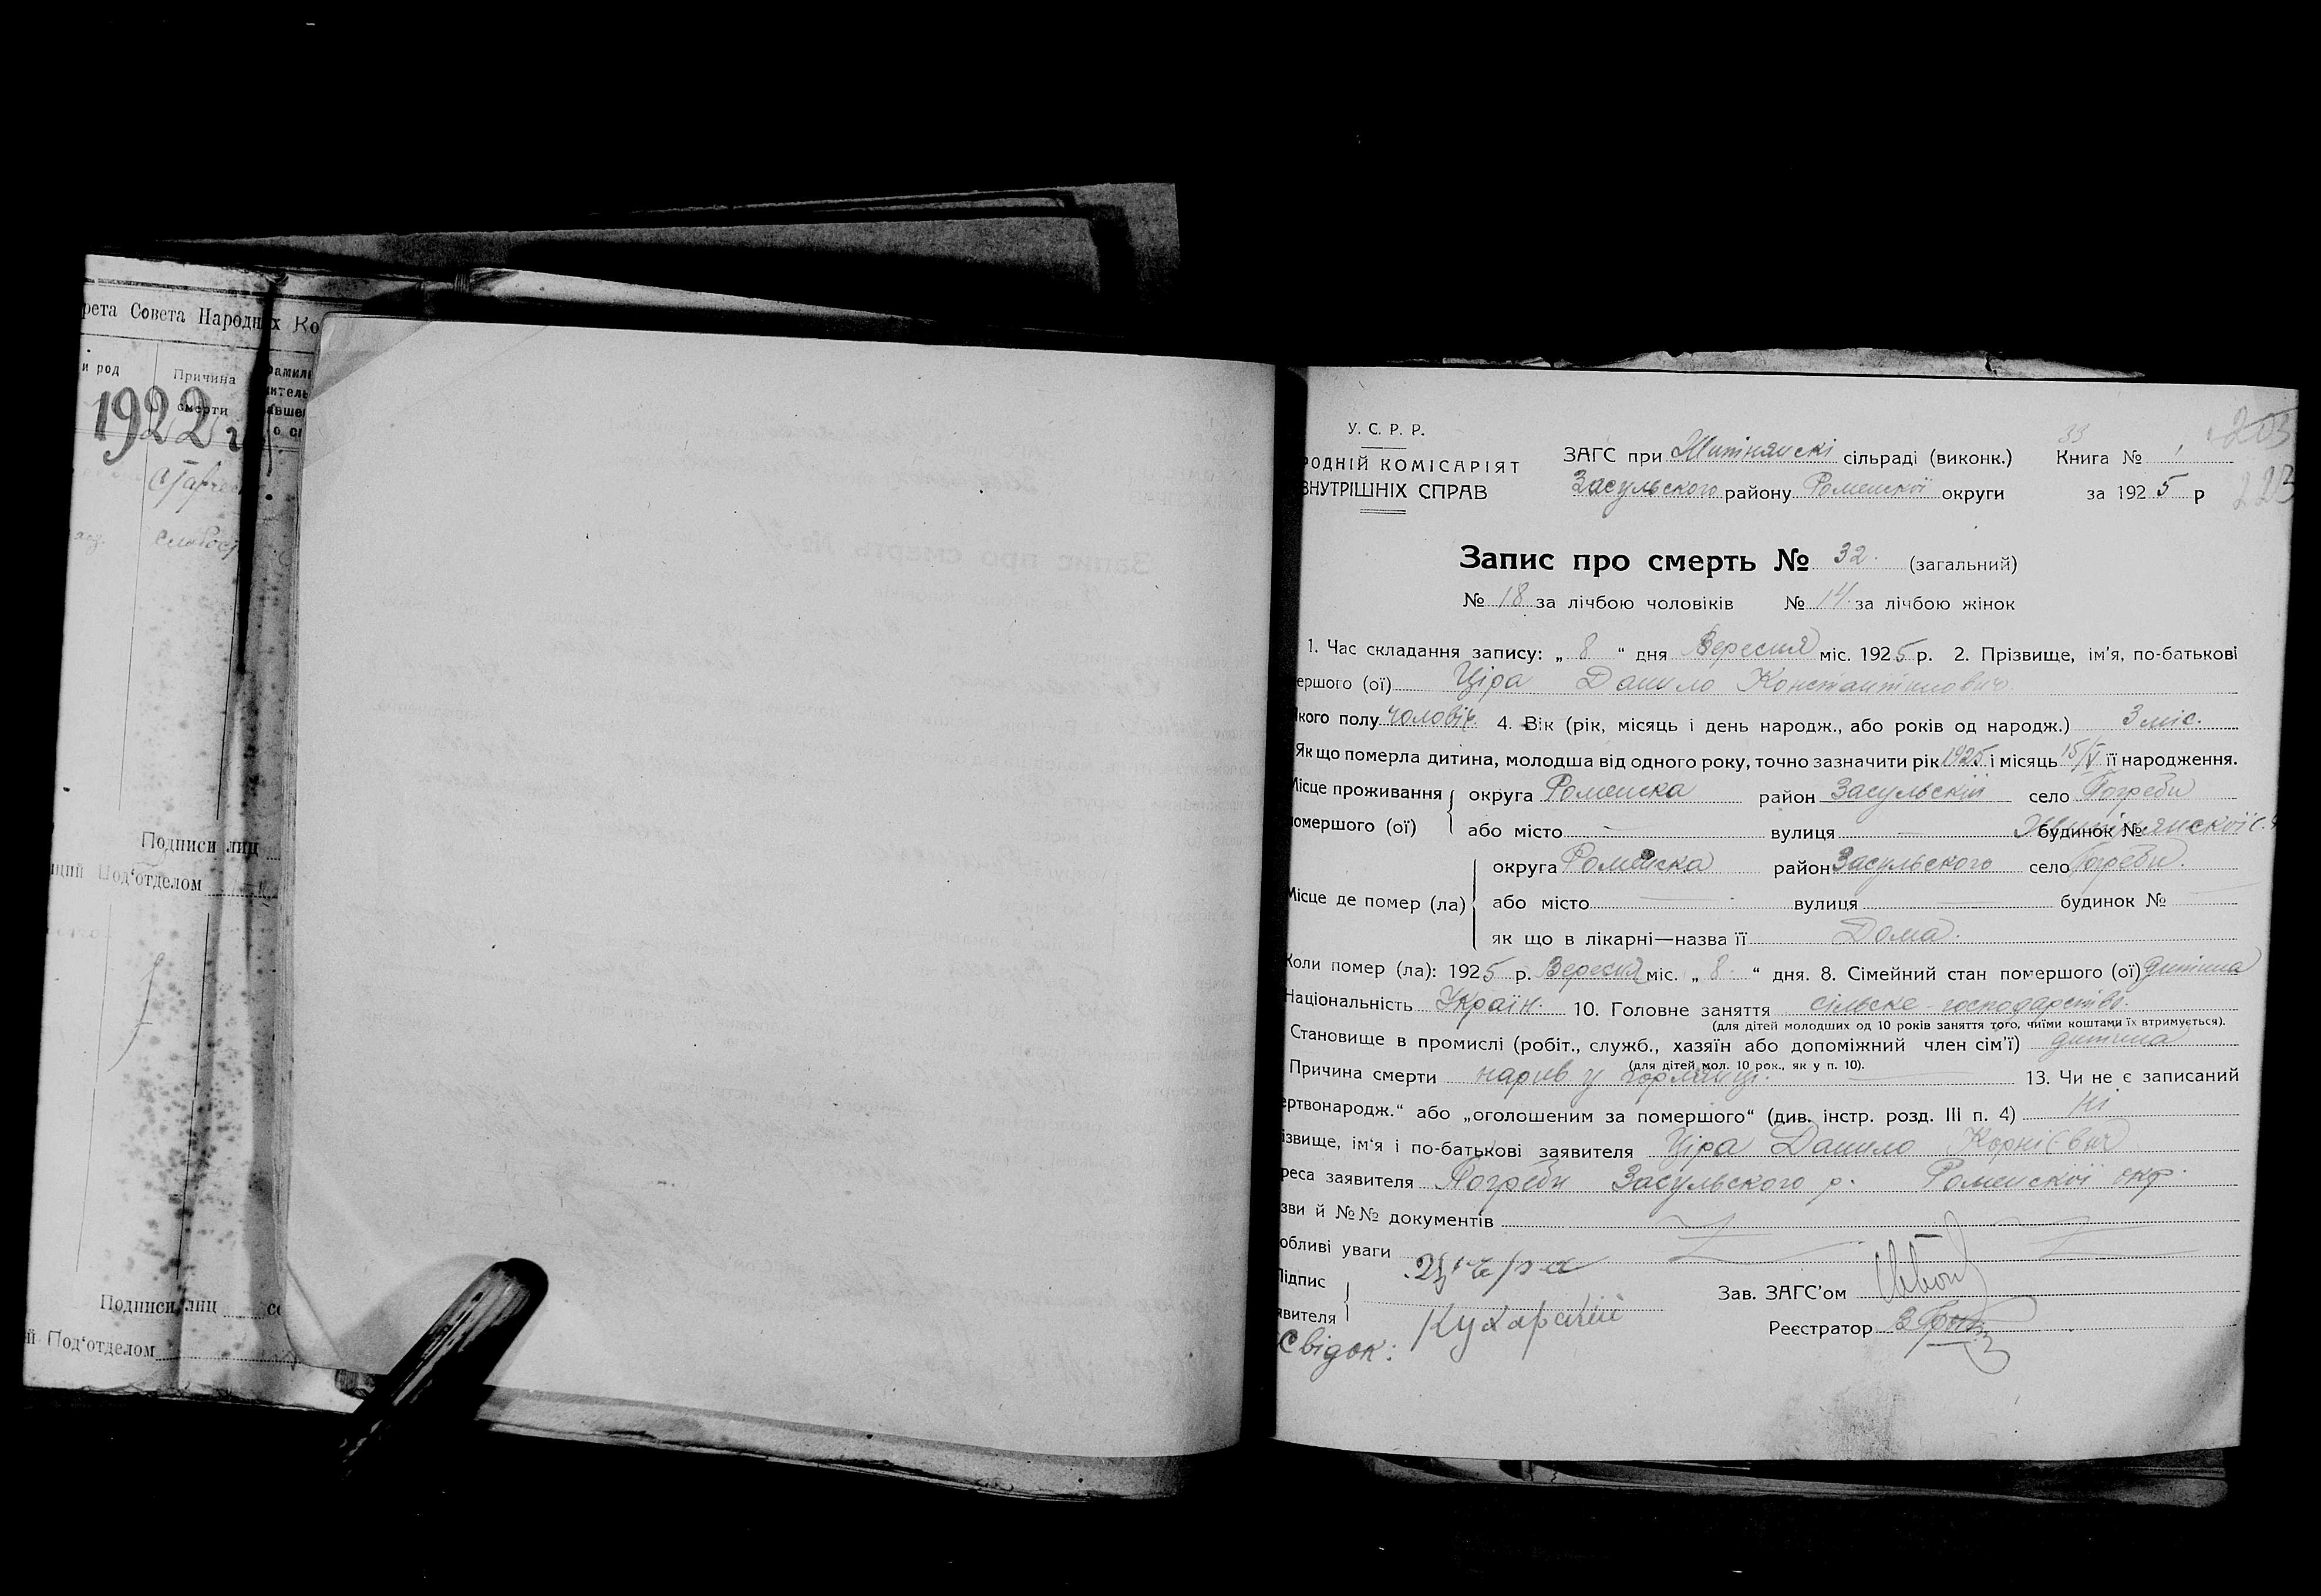 рета Совета Народных Ко
и род
Причина
смерти
1922 г
Подписи лиц
Под‘отделом
Подписи лиц
Под‘отделом
У. С. Р. Р.
РОДНІЙ КОМІСАРІЯТ
ВНУТРІШНІХ СПРАВ
ЗАГС при сільраді (виконк.)
Засульского району Роменскої округи
33
Книга № 1
за 1925 р
203
223
Запис про смерть № 32. (загальний)
№ 18 за лічбою чоловіків № 14 за лічбою жінок
1. Час складання запису: „ 8 “ дня Вересня міс. 1925 р. 2. Прізвище, ім'я, по-батькові
ершого (ої) Ціра Данило Константинович
якого полу чоловіч. 4. Вік (рік, місяць і день народж., або років од народж.) 3 міс.
Як що померла дитина, молодша від одного року, точно зазначити рік 1925 і місяць 15/V її народження.
Місце проживання округа Роменска район Засульский село Погреби
помершого (ої) або місто — вулиця — будинок №
округа Роменска район Засульского село Погреби.
Місце де помер (ла) або місто — вулиця — будинок № —
як що в лікарні—назва її Дома.
Коли помер (ла): 1925 р. Вересня міс. „ 8 “ дня. 8. Сімейний стан помершого (ої) дитина
Національність Україн. 10. Головне заняття сільске-господарство.
(для дітей молодших од 10 років заняття того, чиїми коштами їх втримується).
Становище в промислі (робіт., служб., хазяїн або допоміжний член сім'ї) дитина
(для дітей мол. 10 рок., як у п. 10).
Причина смерти нарив у горлянці. — 13. Чи не є записаний
ертвонародж.“ або „оголошеним за помершого“ (див. інстр. розд. III п. 4) Ні
ізвище, ім‘я і по-батькові заявителя Ціра Данило Корнієвич
реса заявителя Погреби Засульского р. Роменскої окр.
зви й №№ документів
обливі уваги
Підпис
явителя
Зав. ЗАГС'ом
Кухарский
Реєстратор
Свідок: